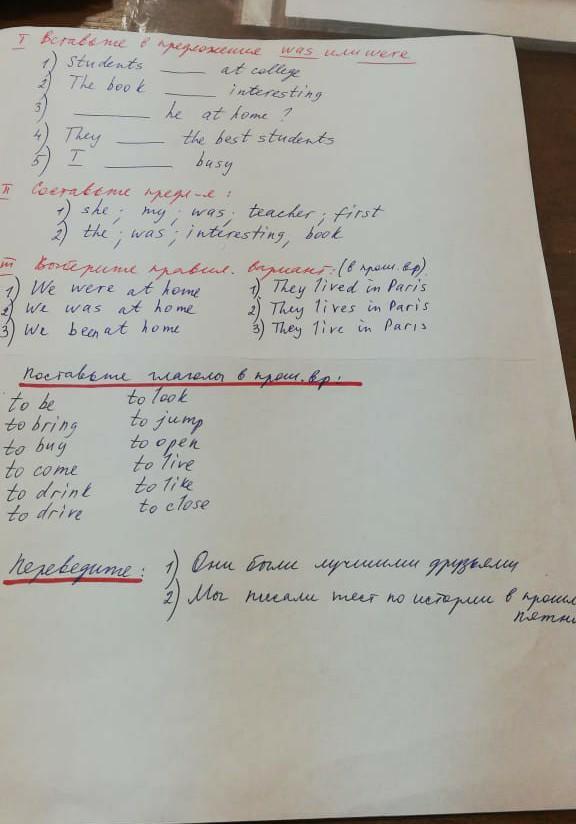 I Вставьте в предложения was или were
1) Students ____ at college
2) The book ____ interesting
3) ____ he at home ?
4) They ____ the best students
5) I ____ busy
II Составьте предл-я :
1) she ; my ; was ; teacher ; first
2) the ; was ; interesting, book
III Выберите правил. вариант: (в прош. вр)
1) We were at home
2) We was at home
3) We been at home
1) They lived in Paris
2) They lives in Paris
3) They live in Paris
Поставьте глаголы в прош. вр:
to be
to bring
to buy
to come
to drink
to drive
to look
to jump
to open
to live
to like
to close
Переведите: 1) Они были лучшими друзьями
2) Мы писали тест по истории в прошл
пятни